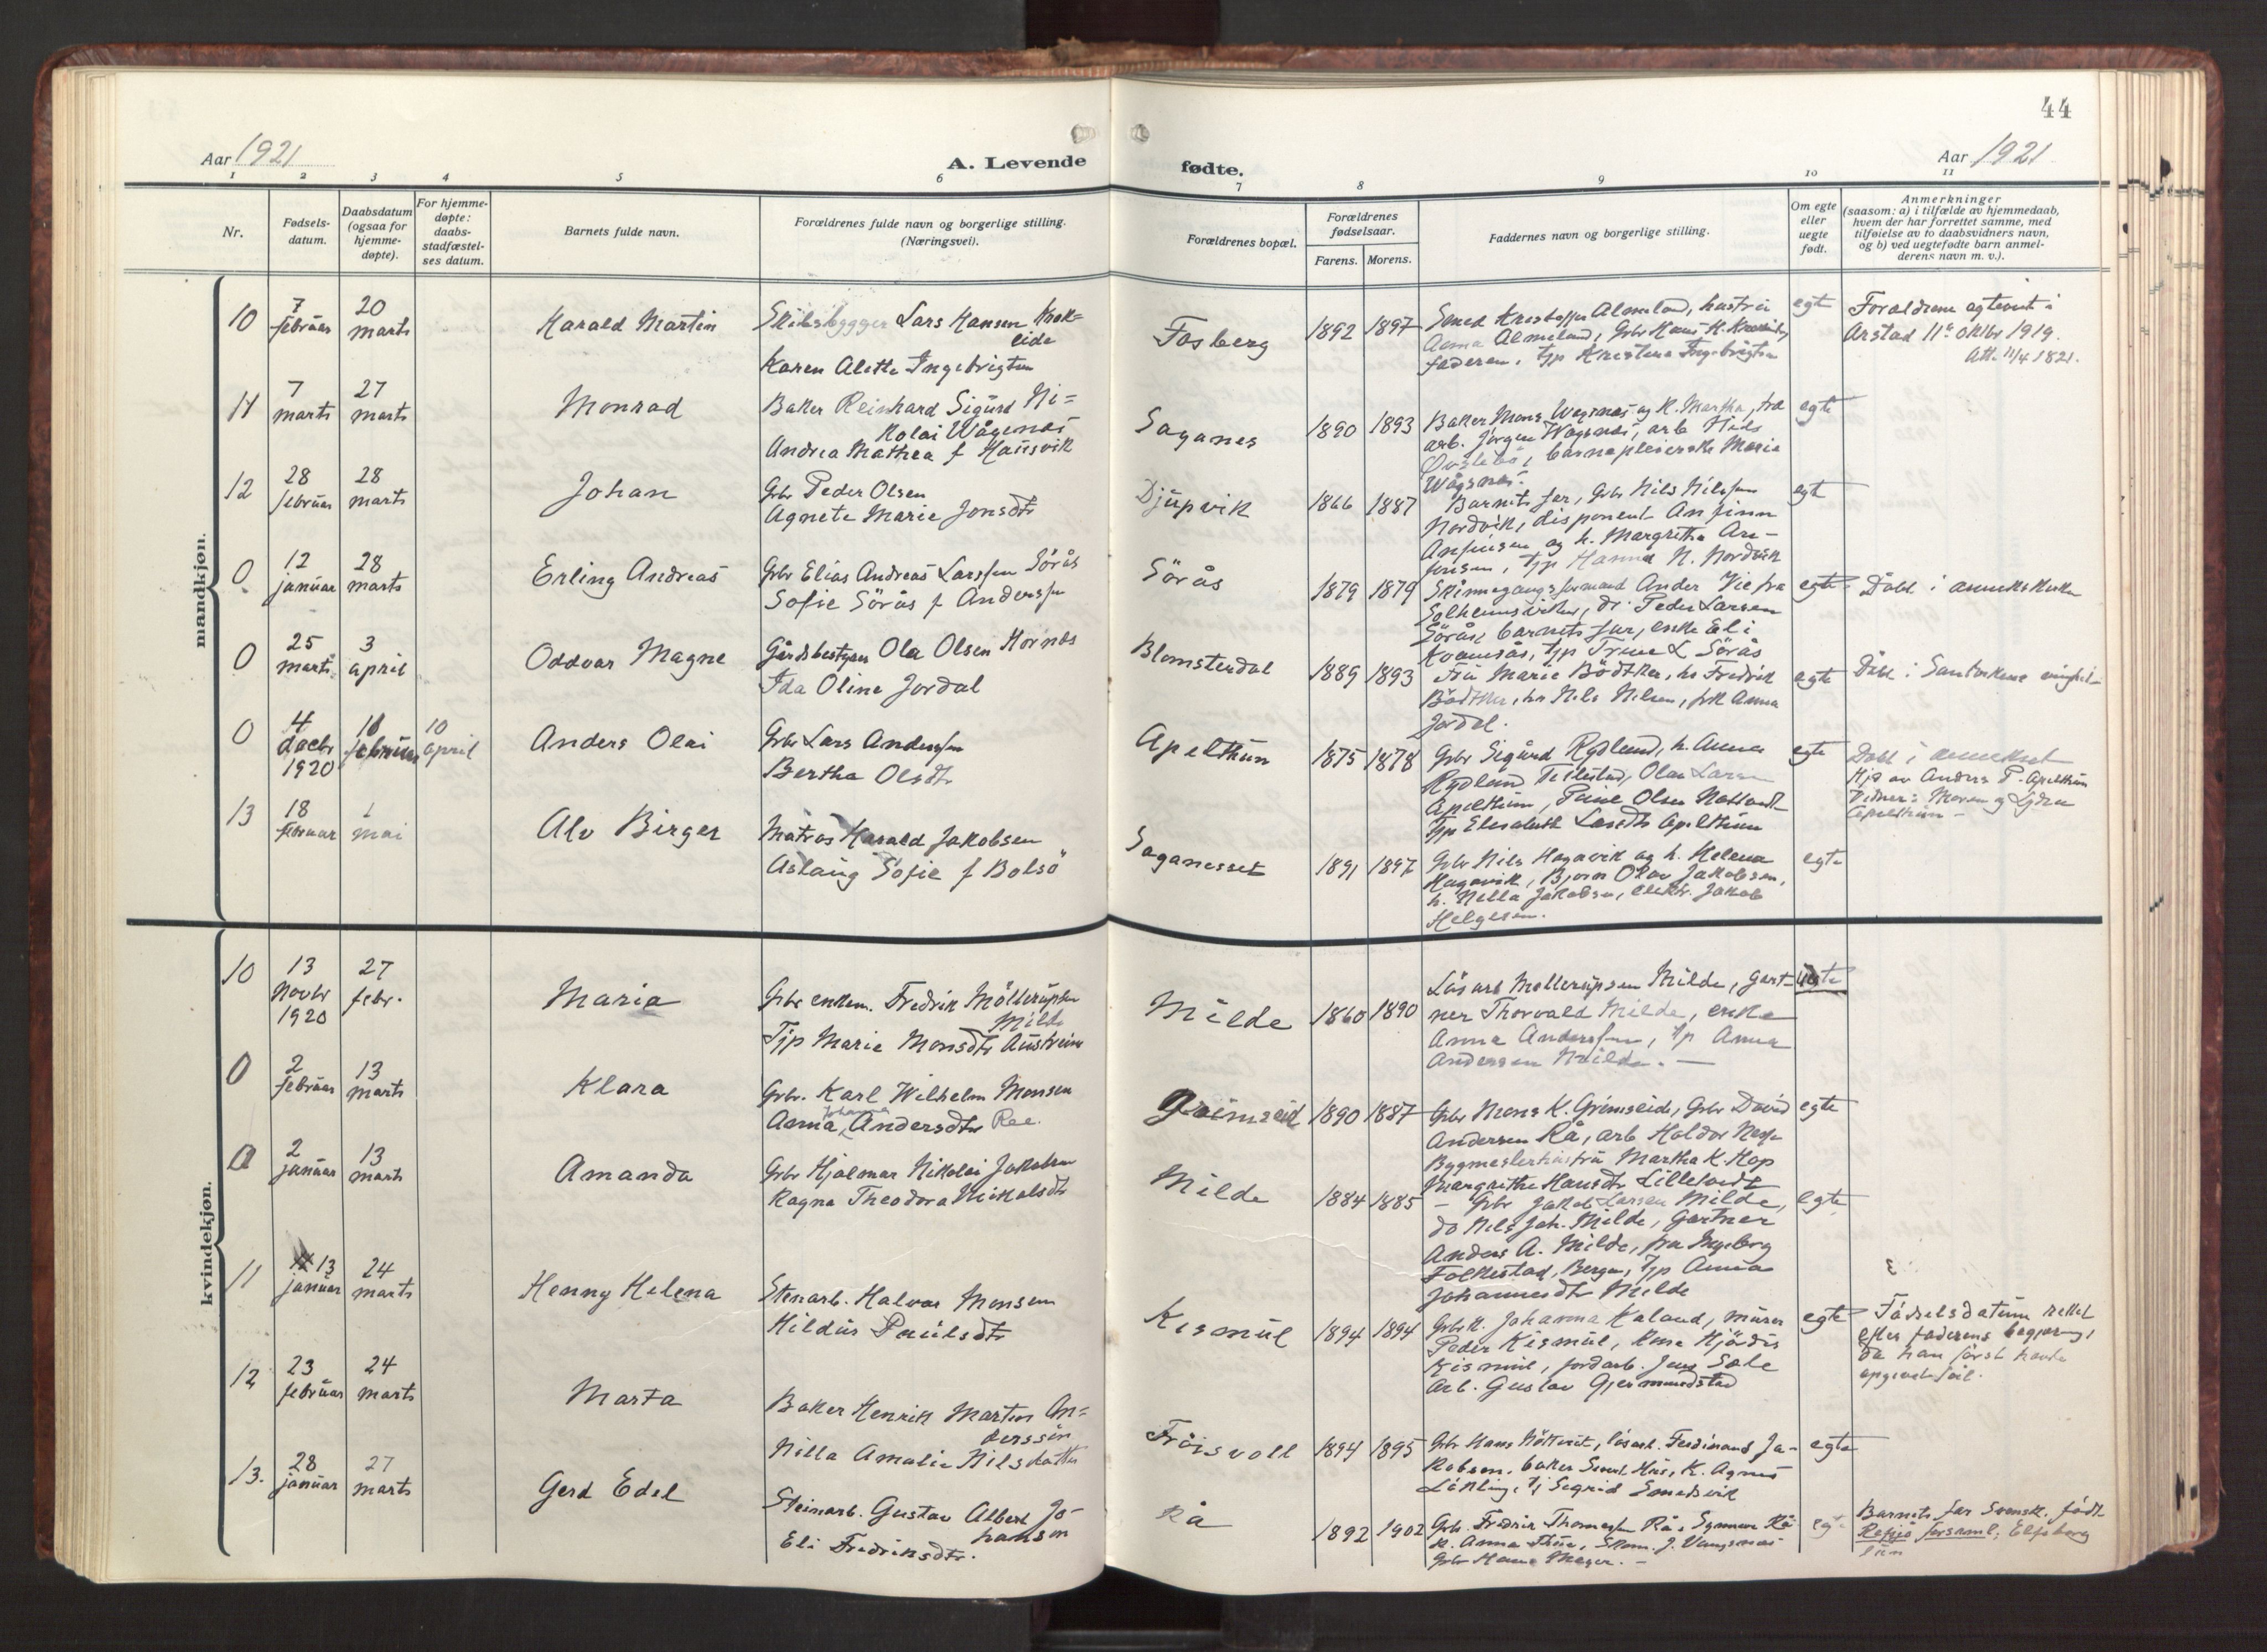 44
Aar 1921
A. Levende
fødte.
Aar 1921
1 2 3 4 5 6 7 8 9 10 11
Nr.
Fødsels-
datum.
Daabsdatum
(ogsaa for
hjemme-
døpte).
For hjemme-
døpte:
daabs-
stadfæstel-
ses datum.
Barnets fulde navn.
Forældrenes fulde navn og borgerlige stilling.
(Næringsvei).
Forældrenes bopæl.
Forældrenes
fødselsaar.
Farens. Morens.
Faddernes navn og borgerlige stilling.
Om egte
eller
uegte
født.
Anmerkninger
(saasom: a) i tilfælde av hjemmedaab,
hvem der har forrettet samme, med
tilføielse av to daabsvidners navn,
og b) ved uegtefødte barn anmel-
derens navn m. v.).
mandkjøn.
10
7
februar
20
marts
Harald Martin
Skibsbygger Lars Hansen Krok-
eide
Karen Alette Ingebrigtsen
Fosberg
1892 1897
Smed Kristoffer Almeland, hustru
Anna Almeland, Gbr Hans H.
faderen, tjp Kristine Ingebrigtsen
egte
Forældrene egteviet i
Årstad 11te oktbr 1919.
Att. 11/4 1821.
11
7
marts
27
marts
Monrad
Baker Reinhard Sigurd Ni-
kolai Wågsnes
Andrea Mathea f Hausvik
Saganes
1890 1893
Baker Mons Wagsnes og K. Martha, fra
arb. Jørgen Wagsnes, arb Nils
barnepleierske Marie
Wågsnes.
egte
12
28
februar
28
marts
Johan
Gbr Peder Olsen
Agnete Marie Jonsdtr
Djupvik
1866 1887
Barnets far, Gbr Nils Nilssen
Nordvik, disponent Anfinn
Anfinsen og h. Margrethe An-
finsen, tjp Hanna N. Nordvik
egte
0
12
januar
28
marts
Erling Andreas
Gbr Elias Andreas Larssen Sörås
Sofie Sörås f Anderssen
Sörås
1879 1879
Skinnegangsformand Ander Vie fra
Solheimsviken, do Peder Larsen
Sörås, barnets far, enke Eli
Kvamsås, tjp Trine L Sörås
egte
Døbt i annekskirken
0
25
marts
3
april
Oddvar Magne
Gårdsbestyrer Ola Olsen Hornes
Ida Oline Jordal
Blomsterdal
1889 1893
Frü Marie Bödtker, hr Fredrik
Bödtker, hr Nils Nilsen, frk Anna
Jordal.
egte
Døbt i
0
4
decbr
1920
februar
10
april
Anders Olai
Gbr Lars Anderssen
Bertha Olsdtr
Apelthun
1875 1878
Gbr Sigurd Rydland, h. Anna
Rydland Teilestad, Olai Larsen
Apelthun, Olsen
tjp Elisabeth Larsdtr Apelthun
egte
Døbt i annekset
Hjd av Anders P. Apelthun
Vidner: Moren og Lydia
Apelthun
13
18
februar
1
mai
Alv Birger
Matros Harald Jakobsen
Aslaug Sofie f Bolsö
Saganesset
1891 1897
Gbr Nils Hagavik og h. Helena
Hagavik, Bjorn Olav Jakobsen,
h. Nella Jakobsen, elektr. Jakob
Helgesen.
egte
kvindekjøn.
10
13
Novbr
1920
27
febr.
Maria
Gbr enkem. Fredrik Möllerupsen
Milde
Tjp Marie Monsdtr Austreim
Milde
1860 1890
Lösarb Mollerupsen Milde, gart-
ner Thorvald Milde, enke
Anna Anderssen, tjp Anna
Andersen Milde. —
uegte
0
2
februar
13
marts
Klara
Gbr. Karl Wilhelm Monsen
Anna Johanna Andersdtr Raa.
Grimseid
1890 1887
Gbr Mons K. Grimseide, Gbr David
Andersen Rå, arb Haldor
Bygmesterhustru Martha K. Hop
Margrithe Hansdtr
egte
0
2
januar
13
marts
Amanda
Gbr Hjalmar Nikolai Jakobsen
Ragna Theodora Nikolaisdtr
Milde
1884 1885
— Gbr Jakob Larsen Milde,
do Nils Joh. Milde, Gartner
Anders A. Milde, fru Ingeborg
Folkestad, Bergen, tjp Anna
Johannesdtr Milde
egte
11
13
januar
24
marts
Henny Helena
Stenarb. Halvar Monsen
Hildur Paulsdtr
Kismul
1894 1894
Gbrk. Johanna Kaland, murer
Peder Kismul, Kone Hjördis
Kismul, jordarb. Jens Sæle
Arb. Gustav Gjermundstad
egte
Fødselsdatum rettet
efter faderens begjæring,
da han først havde
opgivet feil.
12
23
februar
24
marts
Marta
Baker Henrik Martin An-
derssen
Nilla Amalie Nilsdatter
Fröisvoll
1894 1895
Gbr Hans, lösarb. Ferdinand Ja-
kobsen, baker Sivert Hus, K. Agnes
tj Sigrid Smedsvik
egte
13.
28
januar
27
marts
Gerd Edel
Steinarb. Gustav Albert Jo-
hanson
Eli Fredriksdtr.
Rå
1892 1902
Gbr. Fredrik Thomassen Rå, Synneve Rå
K. Anna Thue, Skom. J. Vangsnes
Gbr Hans Meyer. —
egte
Barnets far Svensk. født
forsaml. Elfsborg
län